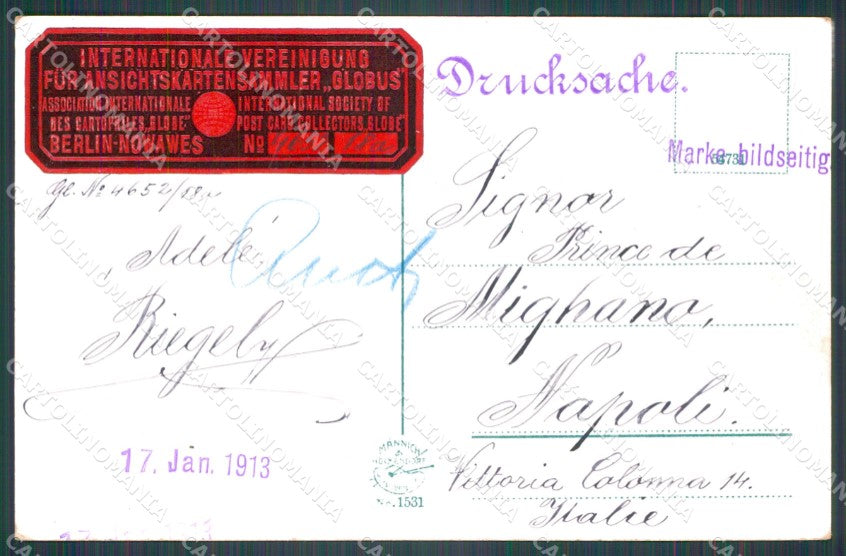 INTERNATIONALE VEREINIGUNG
FÜR ANSICHTSKARTENSAMMLER „GLOBUS"
ASSOCIATION INTERNATIONALE
DES CARTOPHILES „GLOBE"
INTERNATIONAL SOCIETY OF
POST CARD COLLECTORS „GLOBE"
BERLIN-NOWAWES No
Gl. No 4652
Adele
Riegeby
17. Jan. 1913
Drucksache.
Marke bildseitig
Signor
Prince de
Mighano,
Napoli.
Vittoria Colonna 14.
Italie
MANNICH
No. 1531
CARTOLINOMANIA